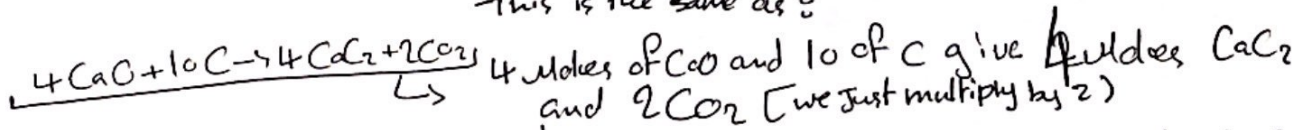 This is the same as:
4CaO+10C→4CaC2+2CO2 4 Moles of CaO and 10 of C give 4 Moles CaC2
and 2CO2 [we Just multiply by 2)